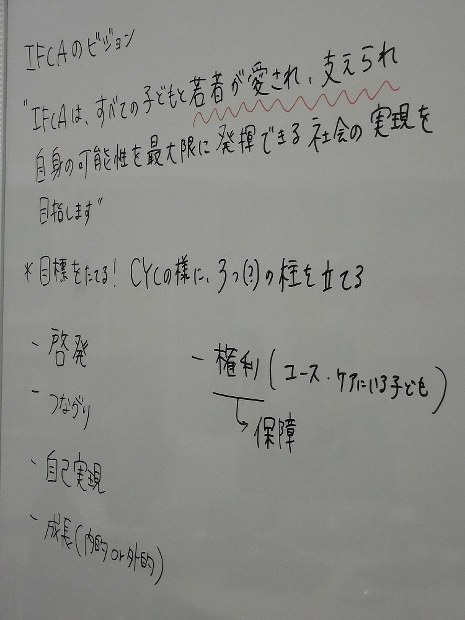 IFCAのビジョン
"IFCAは、すべての子どもと若者が愛され、支えられ
自身の可能性を最大限に発揮できる社会の実現を
目指します"
*目標をたてる! CYCの様に、3つ(?)の柱を立てる
- 啓発
- つながり
- 自己実現
- 成長(内的or外的)
- 権利(ユース・ケアにいる子ども)
↳保障